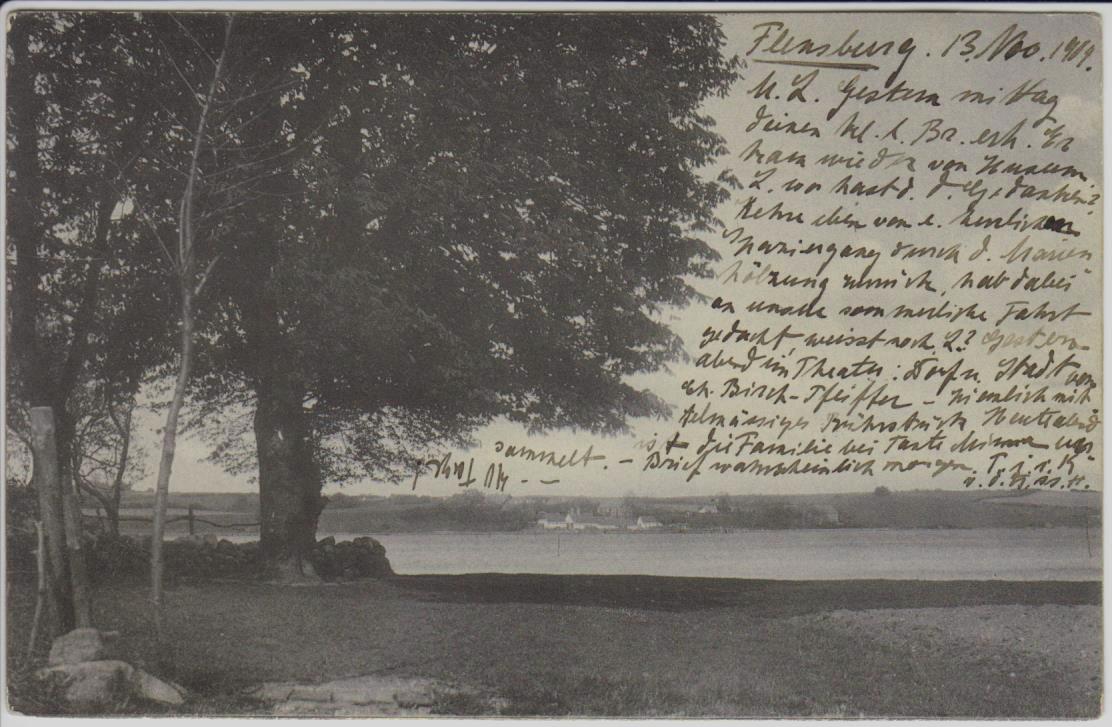 Flensburg. 13. Nov. 1909.
M. L. Gestern mittag
deinen kl. l. Br. erh. Er
kam wieder von Husum,
L. wo hast d. d. Gedanken?
Kehre eben von e. herrlichen
Spaziergang durch d. Marien
hölzung zurück, hab dabei
an unsere sommerliche Fahrt
gedacht weisst noch, L? Gestern
abend im Theater: Dorf u. Stadt von
Ch. Birch-Pfeiffer – ziemlich mit
telmässiges Rührstück Heute abend
ist die Familie bei Tante Minna
sammelt. – Brief wahrscheinlich morgen.